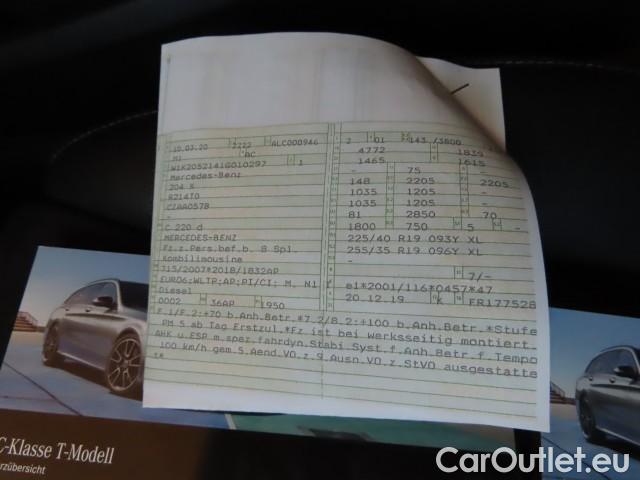 10.03.20 2222 ALC000946 2 01 143 /3800
M1 AC 4772 1839
W1K2052141G010297 1 1465 1615
Mercedes-Benz - 75 -
204 K 148 2205 2205
R214T0 1035 1205 -
CZAA057B 1035 1205 -
- 81 2850 70
C 220 d 1800 750 5 -
MERCEDES-BENZ 225/40 R19 093Y XL
Fz.z.Pers.bef.b. 8 Spl. 255/35 R19 096Y XL
Kombilimousine -
715/2007*2018/1832AP 7/-
EURO6;WLTP;AP;PI/CI; M, N1 I e1*2001/116*0457*47
Diesel 20.12.19 K FR177528
0002 36AP 1950
F.1/F.2:+70 b.Anh.Betr.*7.2/8.2:+100 b.Anh.Betr.*Stufe
PM 5 ab Tag Erstzul.*Fz ist bei werksseitig montiert.
AHK u.ESP m.spez.fahrdyn.Stabi.Syst.f.Anh.Betr.f.Tempo
100 km/h gem.5.Aend.VO.z.9.Ausn.VO.z.StVO ausgestatte
t*
C-Klasse T-Modell
rzübersicht
CarOutlet.eu